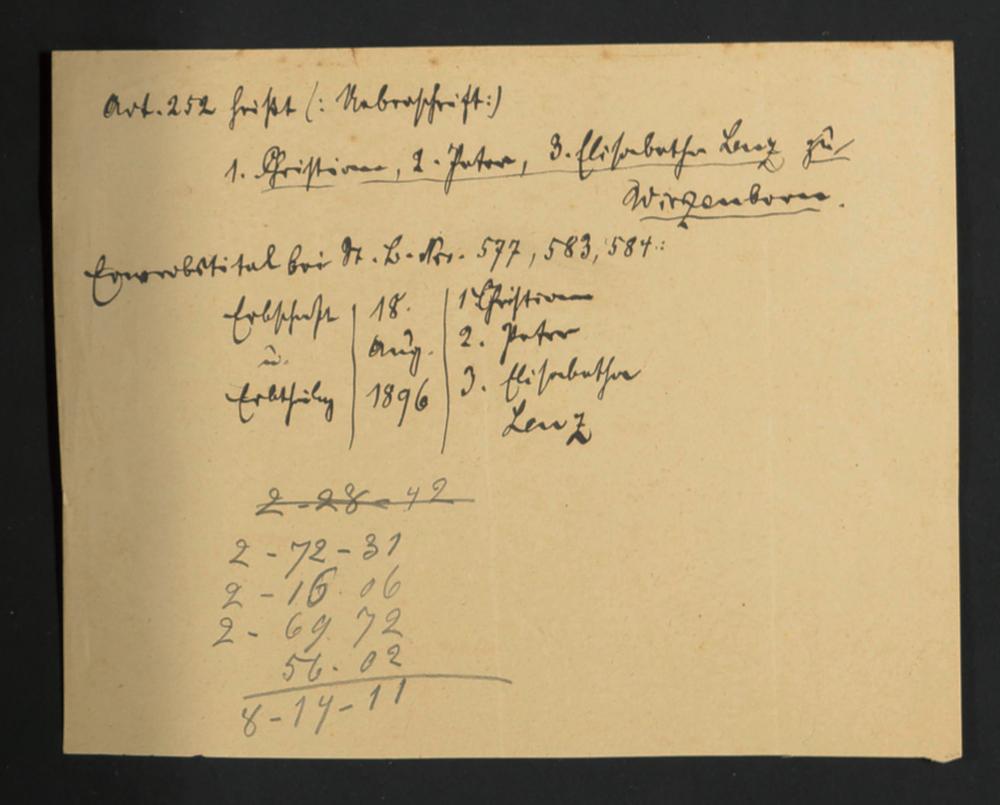 Art. 252 heißt (: Ueberschrift :)
1. Christian, 2. Peter, 3. Elisabetha Lenz zu
Wirzenborn.
Erwerbstitel bei St. B. Nro. 577, 583, 584.:
Erbschaft | 18. | 1 Christian
u. | Aug. | 2. Peter
Erbtheilg | 1896 | 3. Elisabetha
Lenz
2-28-42
2-72-31
2-16.06
2-69.72
56.02
8-14-11